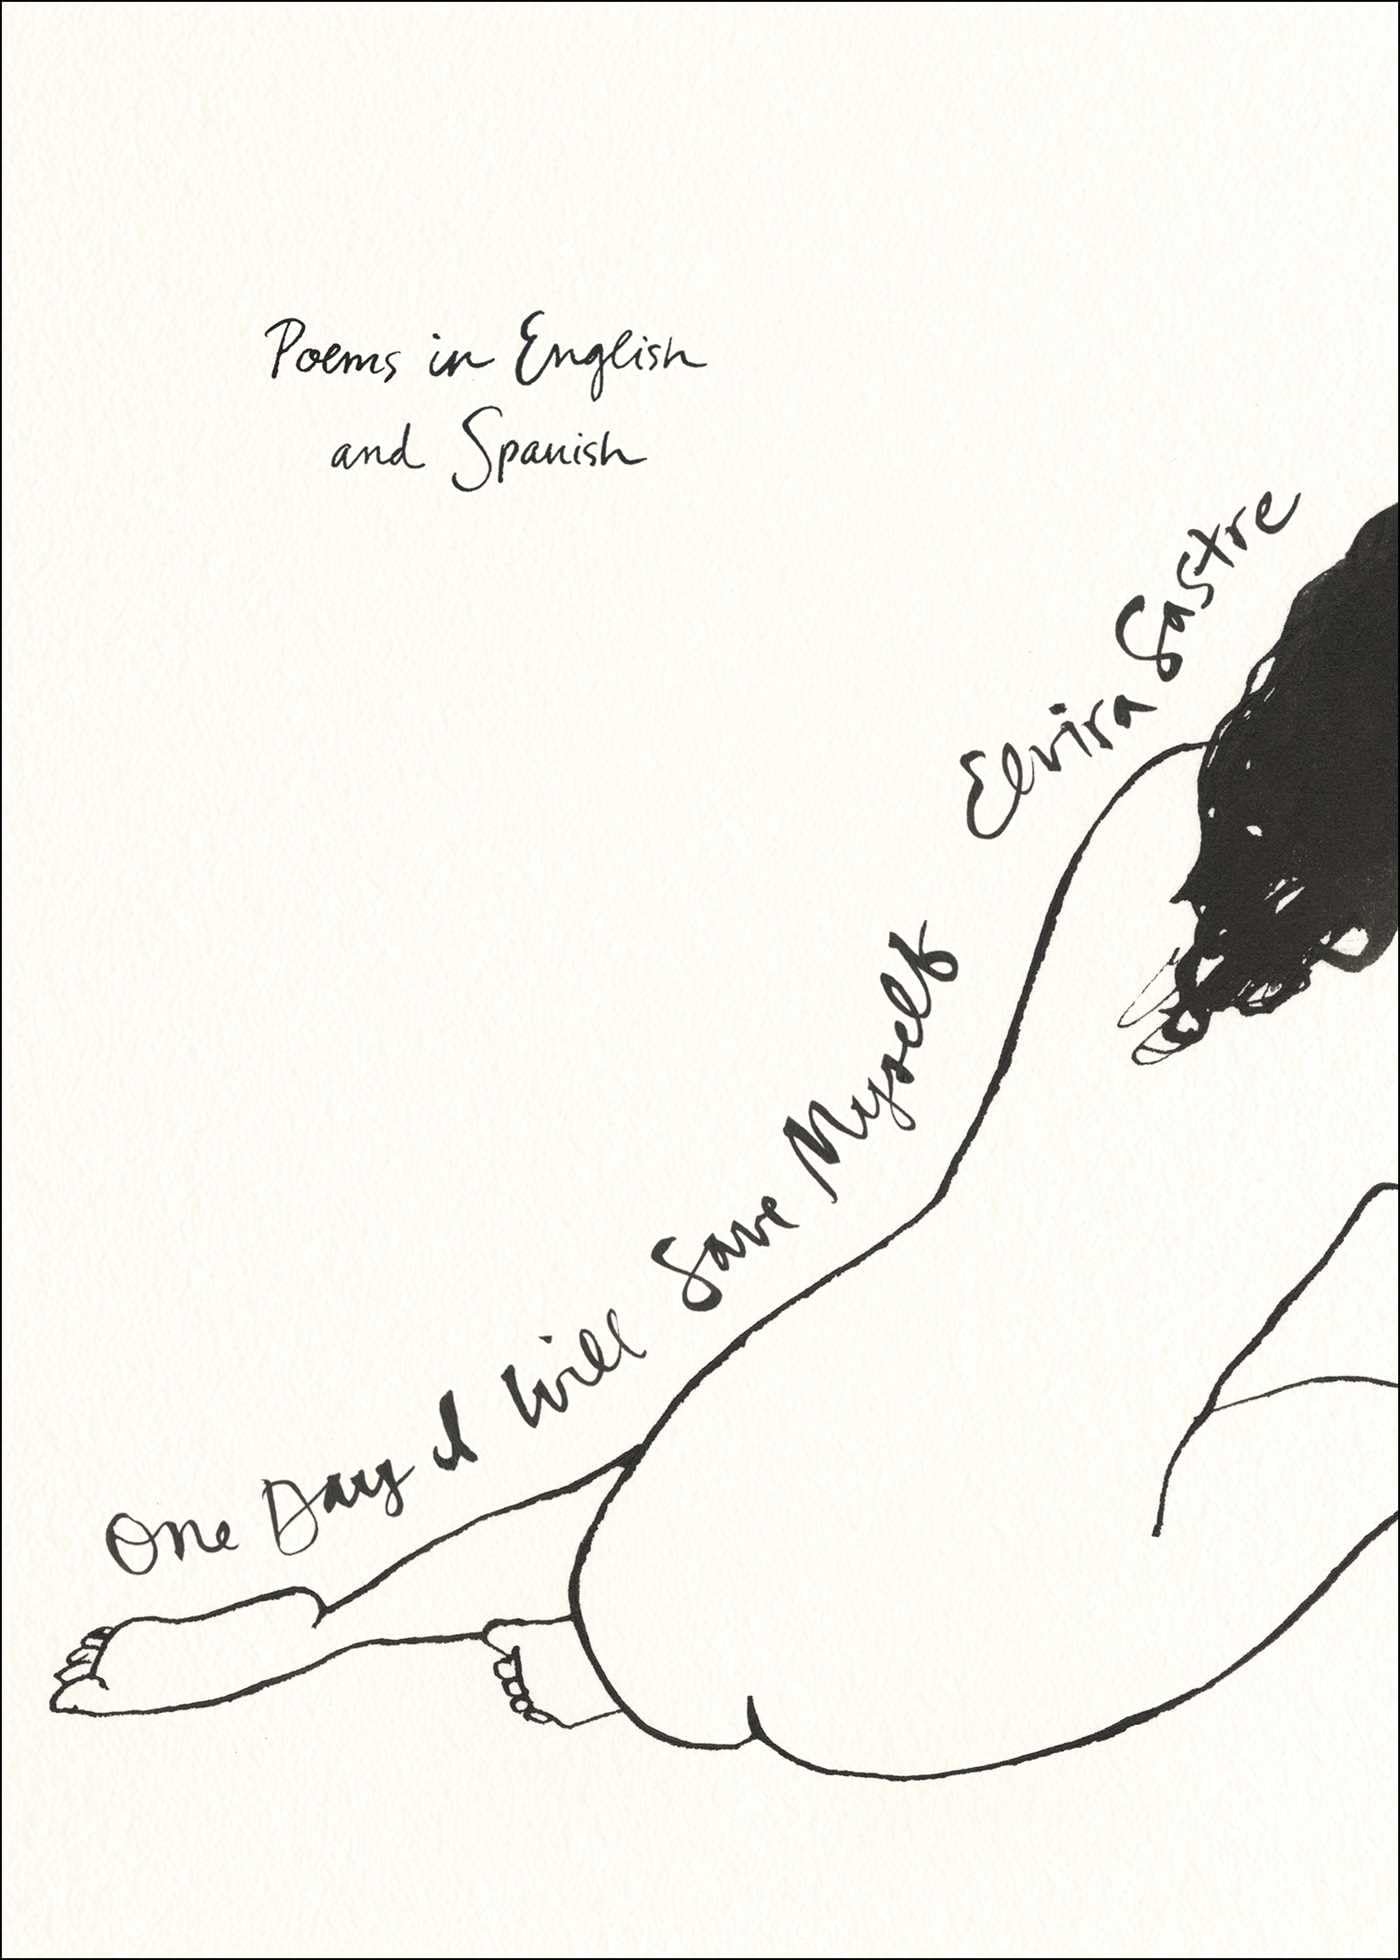 Poems in English
and Spanish
Elvira Sastre
One Day I Will Save Myself